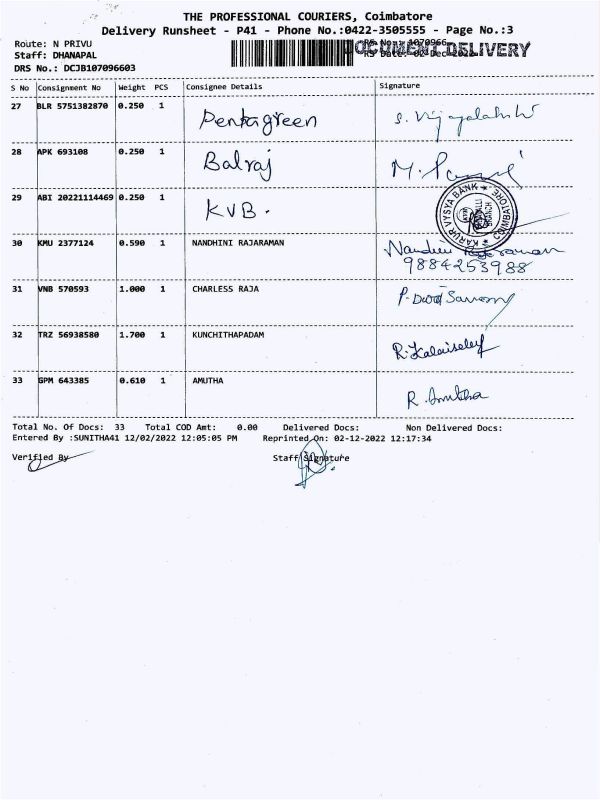 THE PROFESSIONAL COURIERS, Coimbatore
Delivery Runsheet - P41 - Phone No.:0422-3505555 - Page No.:3
Route: N PRIVU
RS No.: 1070966
DOCUMENT DELIVERY
Staff: DHANAPAL
RS Date: 02-Dec-2022
DRS No.: DCJB107096603
S No Consignment No Weight PCS Consignee Details Signature
27 BLR 5751382870 0.250 1 Pentagreen S. Vijayalakshi
28 APK 693108 0.250 1 Balraj M.
29 ABI 20221114469 0.250 1 KVB. KARUR VYSYA BANK COIMBATORE
30 KMU 2377124 0.590 1 NANDHINI RAJARAMAN Nandini Rajaraman
9884253988
31 VNB 570593 1.000 1 CHARLESS RAJA P. David
32 TRZ 56938580 1.700 1 KUNCHITHAPADAM R. Kalaiselvy
33 GPM 643385 0.610 1 AMUTHA R. Amutha
Total No. Of Docs: 33 Total COD Amt: 0.00 Delivered Docs: Non Delivered Docs:
Entered By :SUNITHA41 12/02/2022 12:05:05 PM Reprinted On: 02-12-2022 12:17:34
Verified By Staff Signature